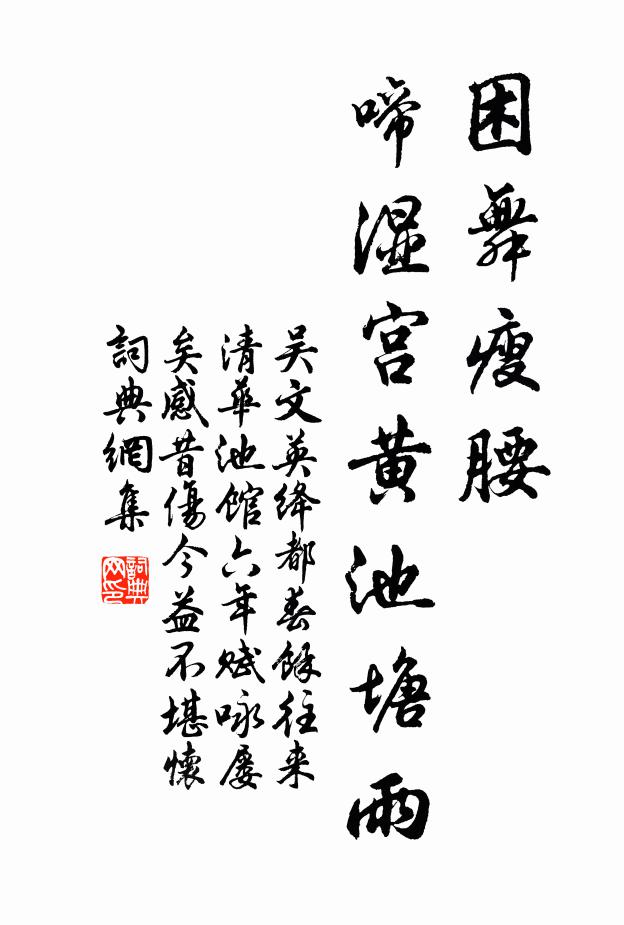 困舞瘦腰
啼湿宫黄池塘雨
吴文英绛都春馀往来
清華池馆六年赋咏屡
矣感昔傷今益不堪懷
詞典網集
詞典网印